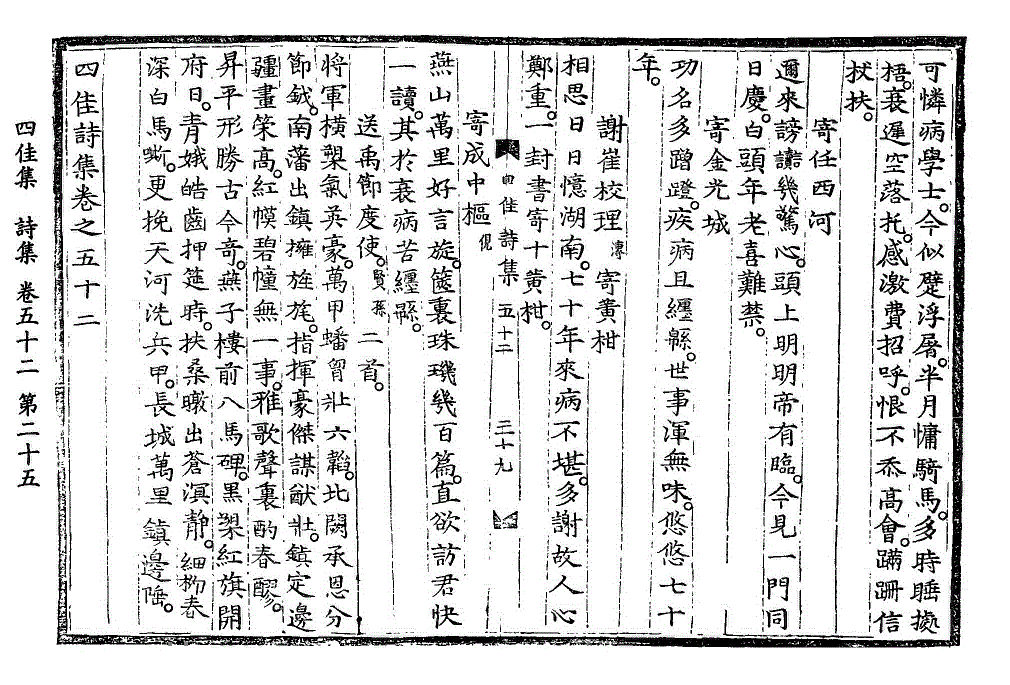 可憐病學士。今似躄浮屠。半月慵騎馬。多時睡據
梧。衰遲空落托。感激費招呼。恨不忝高會。蹣跚信
杖扶。
寄任西河
邇來謗讟幾驚心。頭上明明帝有臨。今見一門同
日慶。白頭年老喜難禁。
寄金光城
功名多蹭蹬。疾病且纏緜。世事渾無味。悠悠七十
年。
謝崔校理漙寄黃柑
相思日日憶湖南。七十年來病不堪。多謝故人心
鄭重。一封書寄十黃柑。
四佳詩集 五十二 二十九
寄成中樞俔
燕山萬里好言旋。篋裏珠璣幾百篇。直欲訪君快
一讀。其於衰病苦纏緜。
送禹節度使。賢孫二首。
將軍橫槊氣英豪。萬甲蟠胷壯六韜。北闕承恩分
節鉞。南藩出鎮擁旌旄。指揮豪傑謀猷壯。鎮定邊
疆畫策高。紅幙碧幢無一事。雅歌聲裏酌春醪。
昇平形勝古今奇。燕子樓前八馬碑。黑槊紅旗開
府日。青娥皓齒押筵時。扶桑暾出蒼溟靜。細柳春
深白馬嘶。更挽天河洗兵甲。長城萬里鎮邊陲。
四佳詩集卷之五十二
四佳集 詩集 卷五十二 第二十五